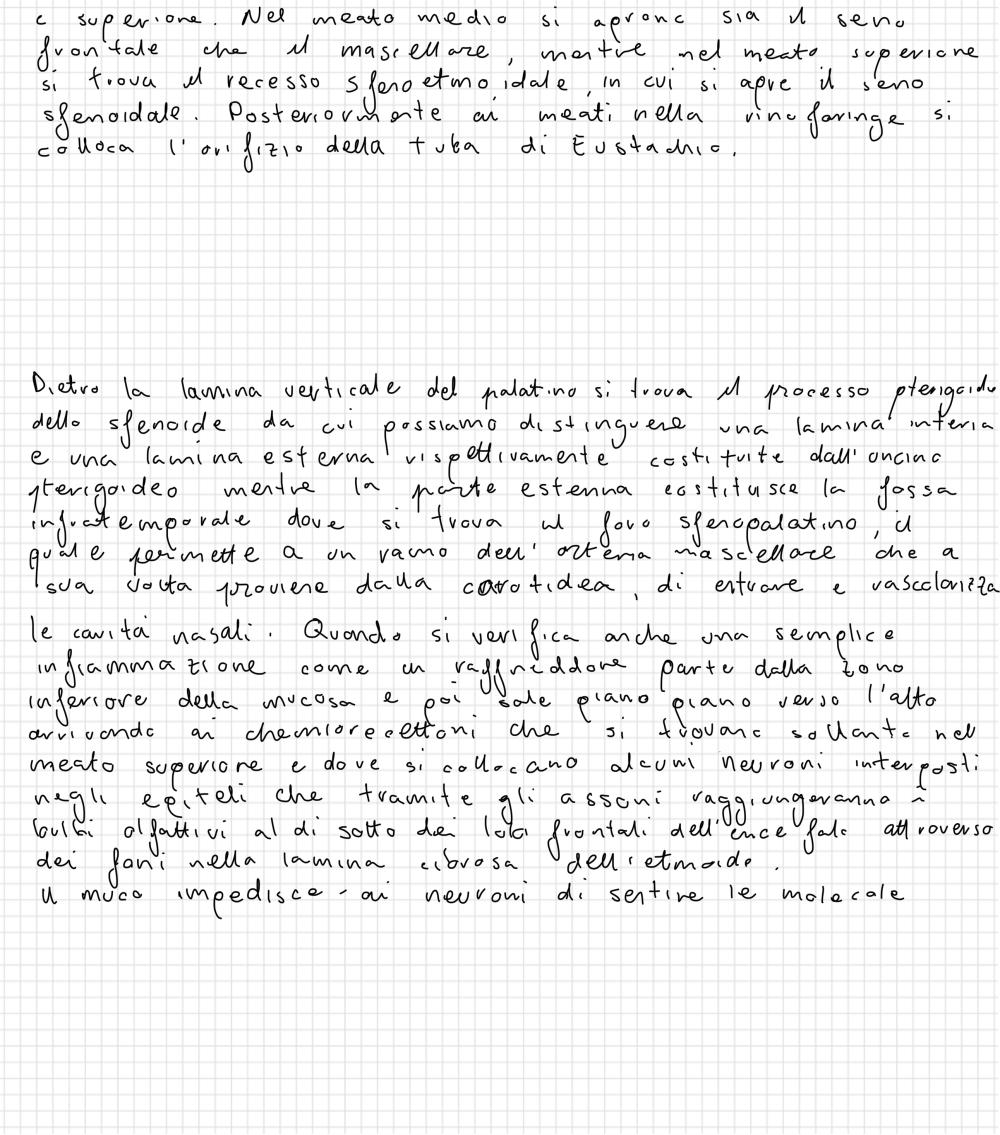 e superiore. Nel meato medio si aprono sia il seno
frontale che il mascellare, mentre nel meato superiore
si trova il recesso sfenoetmoidale, in cui si apre il seno
sfenoidale. Posteriormente ai meati nella rinofaringe si
colloca l'orifizio della tuba di Eustachio.
Dietro la lamina verticale del palatino si trova il processo pterigoideo
dello sfenoide da cui possiamo distinguere una lamina interna
e una lamina esterna rispettivamente costituite dall'uncino
pterigoideo mentre la parte esterna costitusce la fossa
infratemporale dove si trova il foro sfenopalatino, il
quale permette a un ramo dell'arteria mascellare che a
sua volta proviene dalla carotidea, di entrare e vascolarizza
le cavità nasali. Quando si verifica anche una semplice
infiammazione come un raffreddore parte dalla zona
inferiore della mucosa e poi sale piano piano verso l'alto
arrivando ai chemiorecettori che si trovano soltanto nel
meato superiore e dove si collocano alcuni neuroni interposti
negli epiteli che tramite gli assoni raggiungeranno i
bulbi olfattivi al di sotto dei lobi frontali dell'encefalo attraverso
dei fori nella lamina cibrosa dell'etmoide.
Il muco impedisce ai neuroni di sentire le molecole